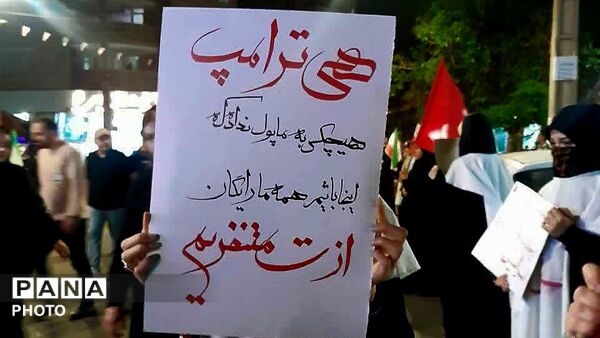 هی ترامپ
هیچکس به ما پول نداده که
اینجا باشیم همه ما رایگان
ازت متنفریم
PANA
PHOTO